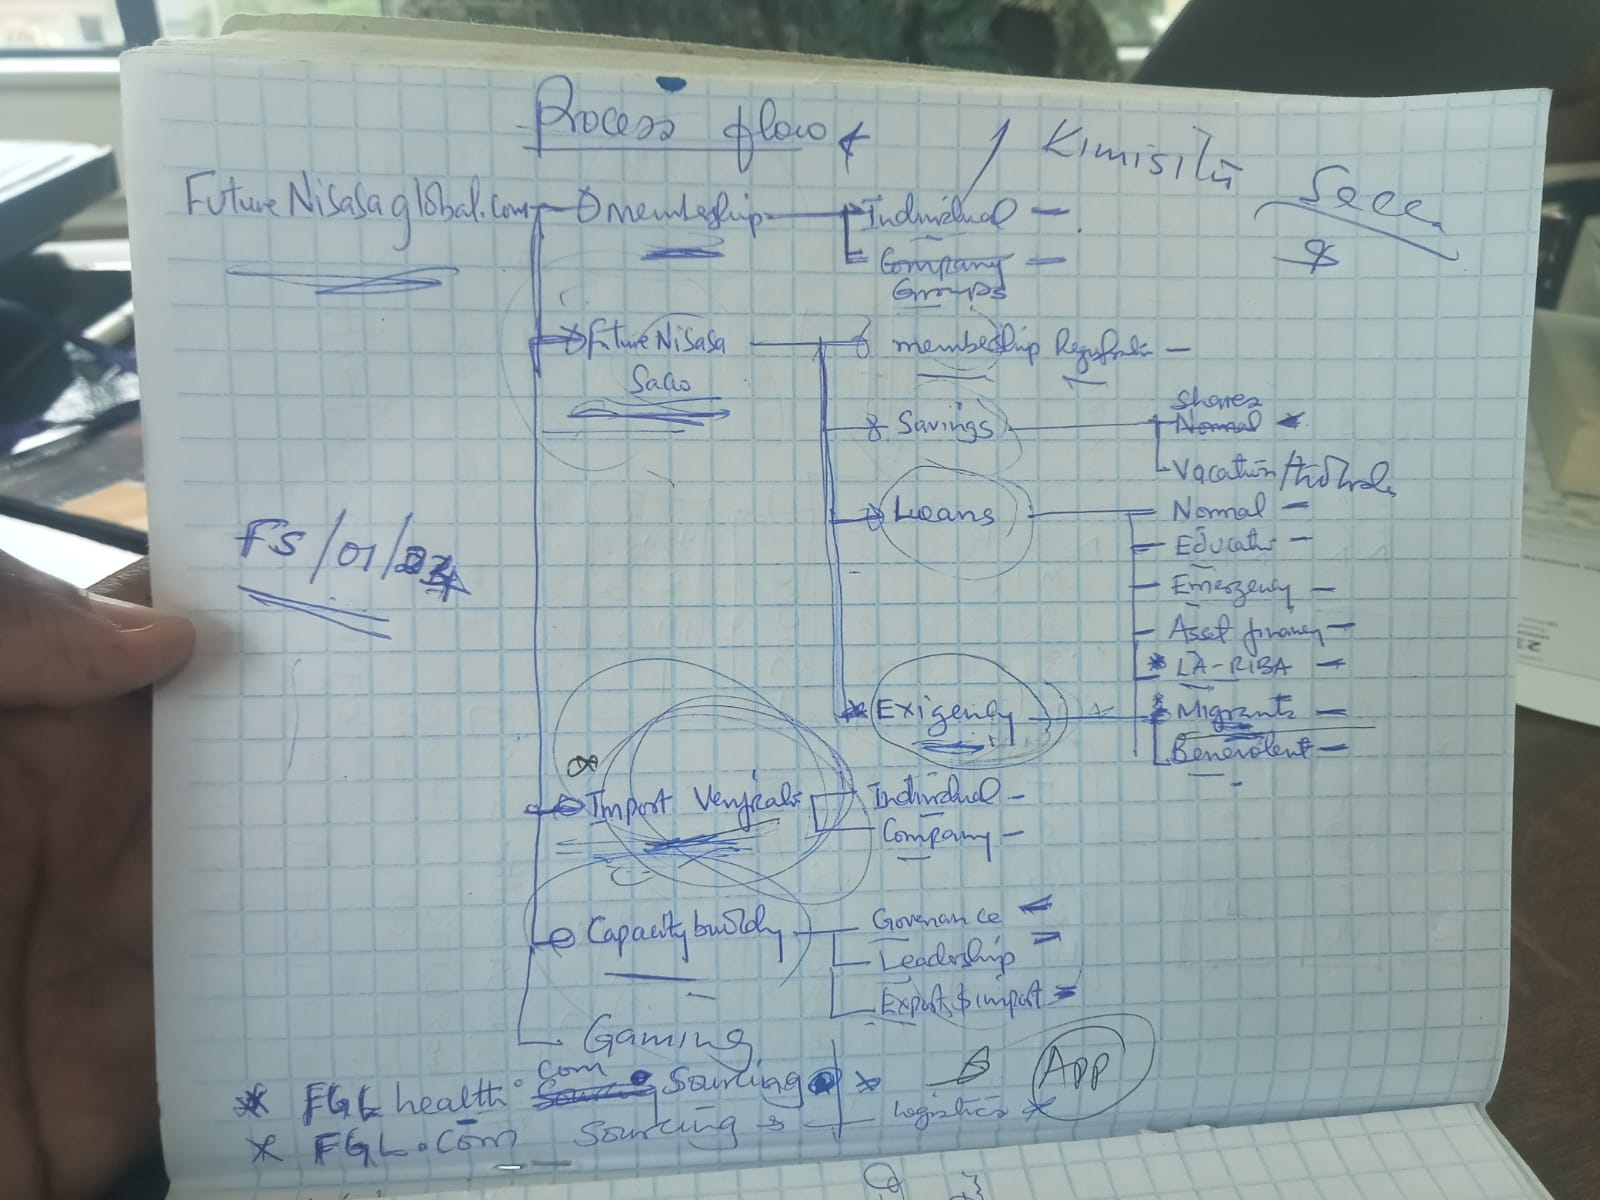 Process flow
Kimisitu
Sacc
$
FutureNisasaglobal.com
membership
Individual
Company
Groups
Future Nisasa
Sacco
membership Registration
Savings
Shares
Normal
Vacation/
Loans
Normal
Education
Emergency
Asset financy
LA-RIBA
Exigency
Migrants
Benevolent
FS/01/
Import Verificatn
Individual
Company
Capacity buildng
Governance
Leadership
Export & import
Gaming
FGL health.com Sourcing
App
FGL.com Sourcing
Logistics